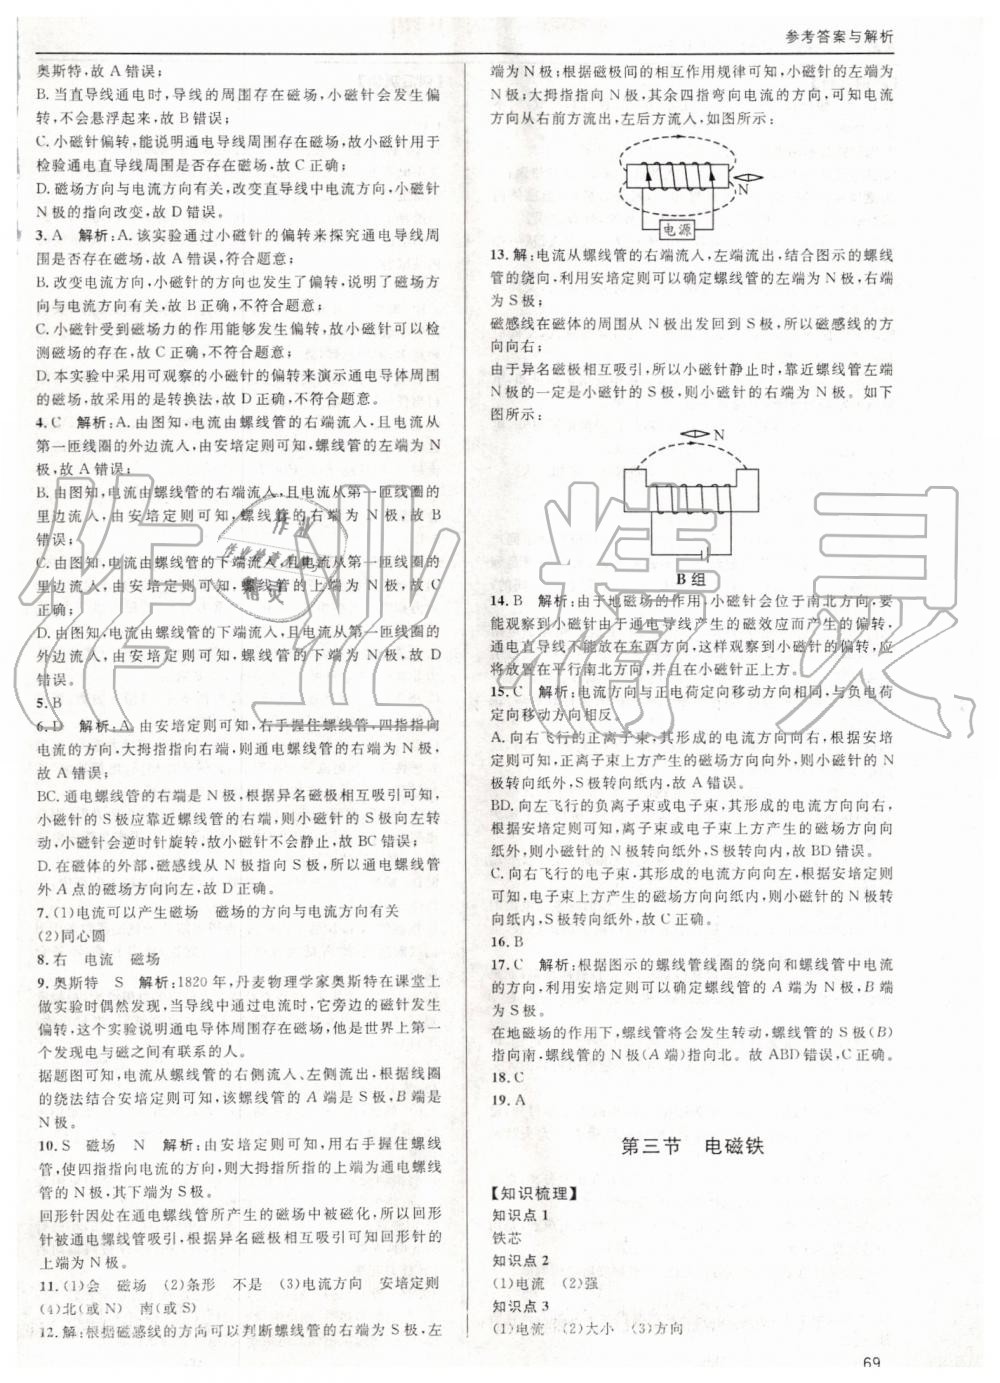 参考答案与解析
奥斯特,故A错误;
B.当直导线通电时,导线的周围存在磁场,小磁针会发生偏
转,不会悬浮起来,故B错误;
C.小磁针偏转,能说明通电导线周围存在磁场,故小磁针用于
检验通电直导线周围是否存在磁场,故C正确;
D.磁场方向与电流方向有关,改变直导线中电流方向,小磁针
N极的指向改变,故D错误。
3.A 解析:A.该实验通过小磁针的偏转来探究通电导线周
围是否存在磁场,故A错误,符合题意;
B.改变电流方向,小磁针的方向也发生了偏转,说明了磁场方
向与电流方向有关,故B正确,不符合题意;
C.小磁针受到磁场力的作用能够发生偏转,故小磁针可以检
测磁场的存在,故C正确,不符合题意;
D.本实验中采用可观察的小磁针的偏转来演示通电导体周围
的磁场,故采用的是转换法,故D正确,不符合题意。
4.C 解析:A.由图知,电流由螺线管的右端流入,且电流从
第一匝线圈的外边流入,由安培定则可知,螺线管的左端为N
极,故A错误;
B.由图知,电流由螺线管的右端流入,且电流从第一匝线圈的
里边流入,由安培定则可知,螺线管的右端为N极,故B
错误;
C.由图知,电流由螺线管的下端流入,且电流从第一匝线圈的
里边流入,由安培定则可知,螺线管的上端为N极,故C
正确;
D.由图知,电流由螺线管的下端流入,且电流从第一匝线圈的
外边流入,由安培定则可知,螺线管的下端为N极,故D
错误。
5.B
6.D 解析:A.由安培定则可知,右手握住螺线管,四指指向
电流的方向,大拇指指向右端,则通电螺线管的右端为N极,
故A错误;
BC.通电螺线管的右端是N极,根据异名磁极相互吸引可知,
小磁针的S极应靠近螺线管的右端,则小磁针的S极向左转
动,小磁针会逆时针旋转,故小磁针不会静止,故BC错误;
D.在磁体的外部,磁感线从N极指向S极,所以通电螺线管
外A点的磁场方向向左,故D正确。
7.(1)电流可以产生磁场 磁场的方向与电流方向有关
(2)同心圆
8.右 电流 磁场
9.奥斯特 S 解析:1820年,丹麦物理学家奥斯特在课堂上
做实验时偶然发现,当导线中通过电流时,它旁边的磁针发生
偏转,这个实验说明通电导体周围存在磁场,他是世界上第一
个发现电与磁之间有联系的人。
据题图可知,电流从螺线管的右侧流入、左侧流出,根据线圈
的绕法结合安培定则可知,该螺线管的A端是S极,B端是
N极。
10.S 磁场 N 解析:由安培定则可知,用右手握住螺线
管,使四指指向电流的方向,则大拇指所指的上端为通电螺线
管的N极,其下端为S极。
回形针因处在通电螺线管所产生的磁场中被磁化,所以回形
针被通电螺线管吸引,根据异名磁极相互吸引可知回形针的
上端为N极。
11.(1)会 磁场 (2)条形 不是 (3)电流方向 安培定则
(4)北(或N) 南(或S)
12.解:根据磁感线的方向可以判断螺线管的右端为S极,左
端为N极;根据磁极间的相互作用规律可知,小磁针的左端为
N极;大拇指指向N极,其余四指弯向电流的方向,可知电流
方向从右前方流出,左后方流入,如图所示:
N
电源
13.解:电流从螺线管的右端流入,左端流出,结合图示的螺线
管的绕向,利用安培定则可以确定螺线管的左端为N极,右端
为S极;
磁感线在磁体的周围从N极出发回到S极,所以磁感线的方
向向右;
由于异名磁极相互吸引,所以小磁针静止时,靠近螺线管左端
N极的一定是小磁针的S极,则小磁针的右端为N极。如下
图所示:
N
B组
14.B 解析:由于地磁场的作用,小磁针会位于南北方向,要
能观察到小磁针由于通电导线产生的磁效应而产生的偏转,
通电直导线不能放在东西方向,这样观察到小磁针的偏转,应
将放置在平行南北方向,并且在小磁针正上方。
15.C 解析:电流方向与正电荷定向移动方向相同,与负电荷
定向移动方向相反。
A.向右飞行的正离子束,其形成的电流方向向右,根据安培定
则可知,正离子束上方产生的磁场方向向外,则小磁针的N
极转向纸外,S极转向纸内,故A错误;
BD.向左飞行的负离子束或电子束,其形成的电流方向向右,
根据安培定则可知,离子束或电子束上方产生的磁场方向向
纸外,则小磁针的N极转向纸外,S极转向纸内,故BD错误。
C.向右飞行的电子束,其形成的电流方向向左,根据安培定则
可知,电子束上方产生的磁场方向向纸内,则小磁针的N极转
向纸内,S极转向纸外,故C正确。
16.B
17.C 解析:根据图示的螺线管线圈的绕向和螺线管中电流
的方向,利用安培定则可以确定螺线管的A端为N极,B端
为S极。
在地磁场的作用下,螺线管将会发生转动,螺线管的S极(B)
指向南,螺线管的N极(A端)指向北。故ABD错误,C正确。
18.C
19.A
第三节 电磁铁
【知识梳理】
知识点1
铁芯
知识点2
(1)电流 (2)强
知识点3
(1)电流 (2)大小 (3)方向
69
作业精灵